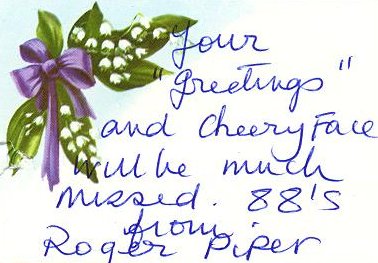 Your
"greetings"
and Cheery Face
will be much
missed. 88's
from
Roger Piper